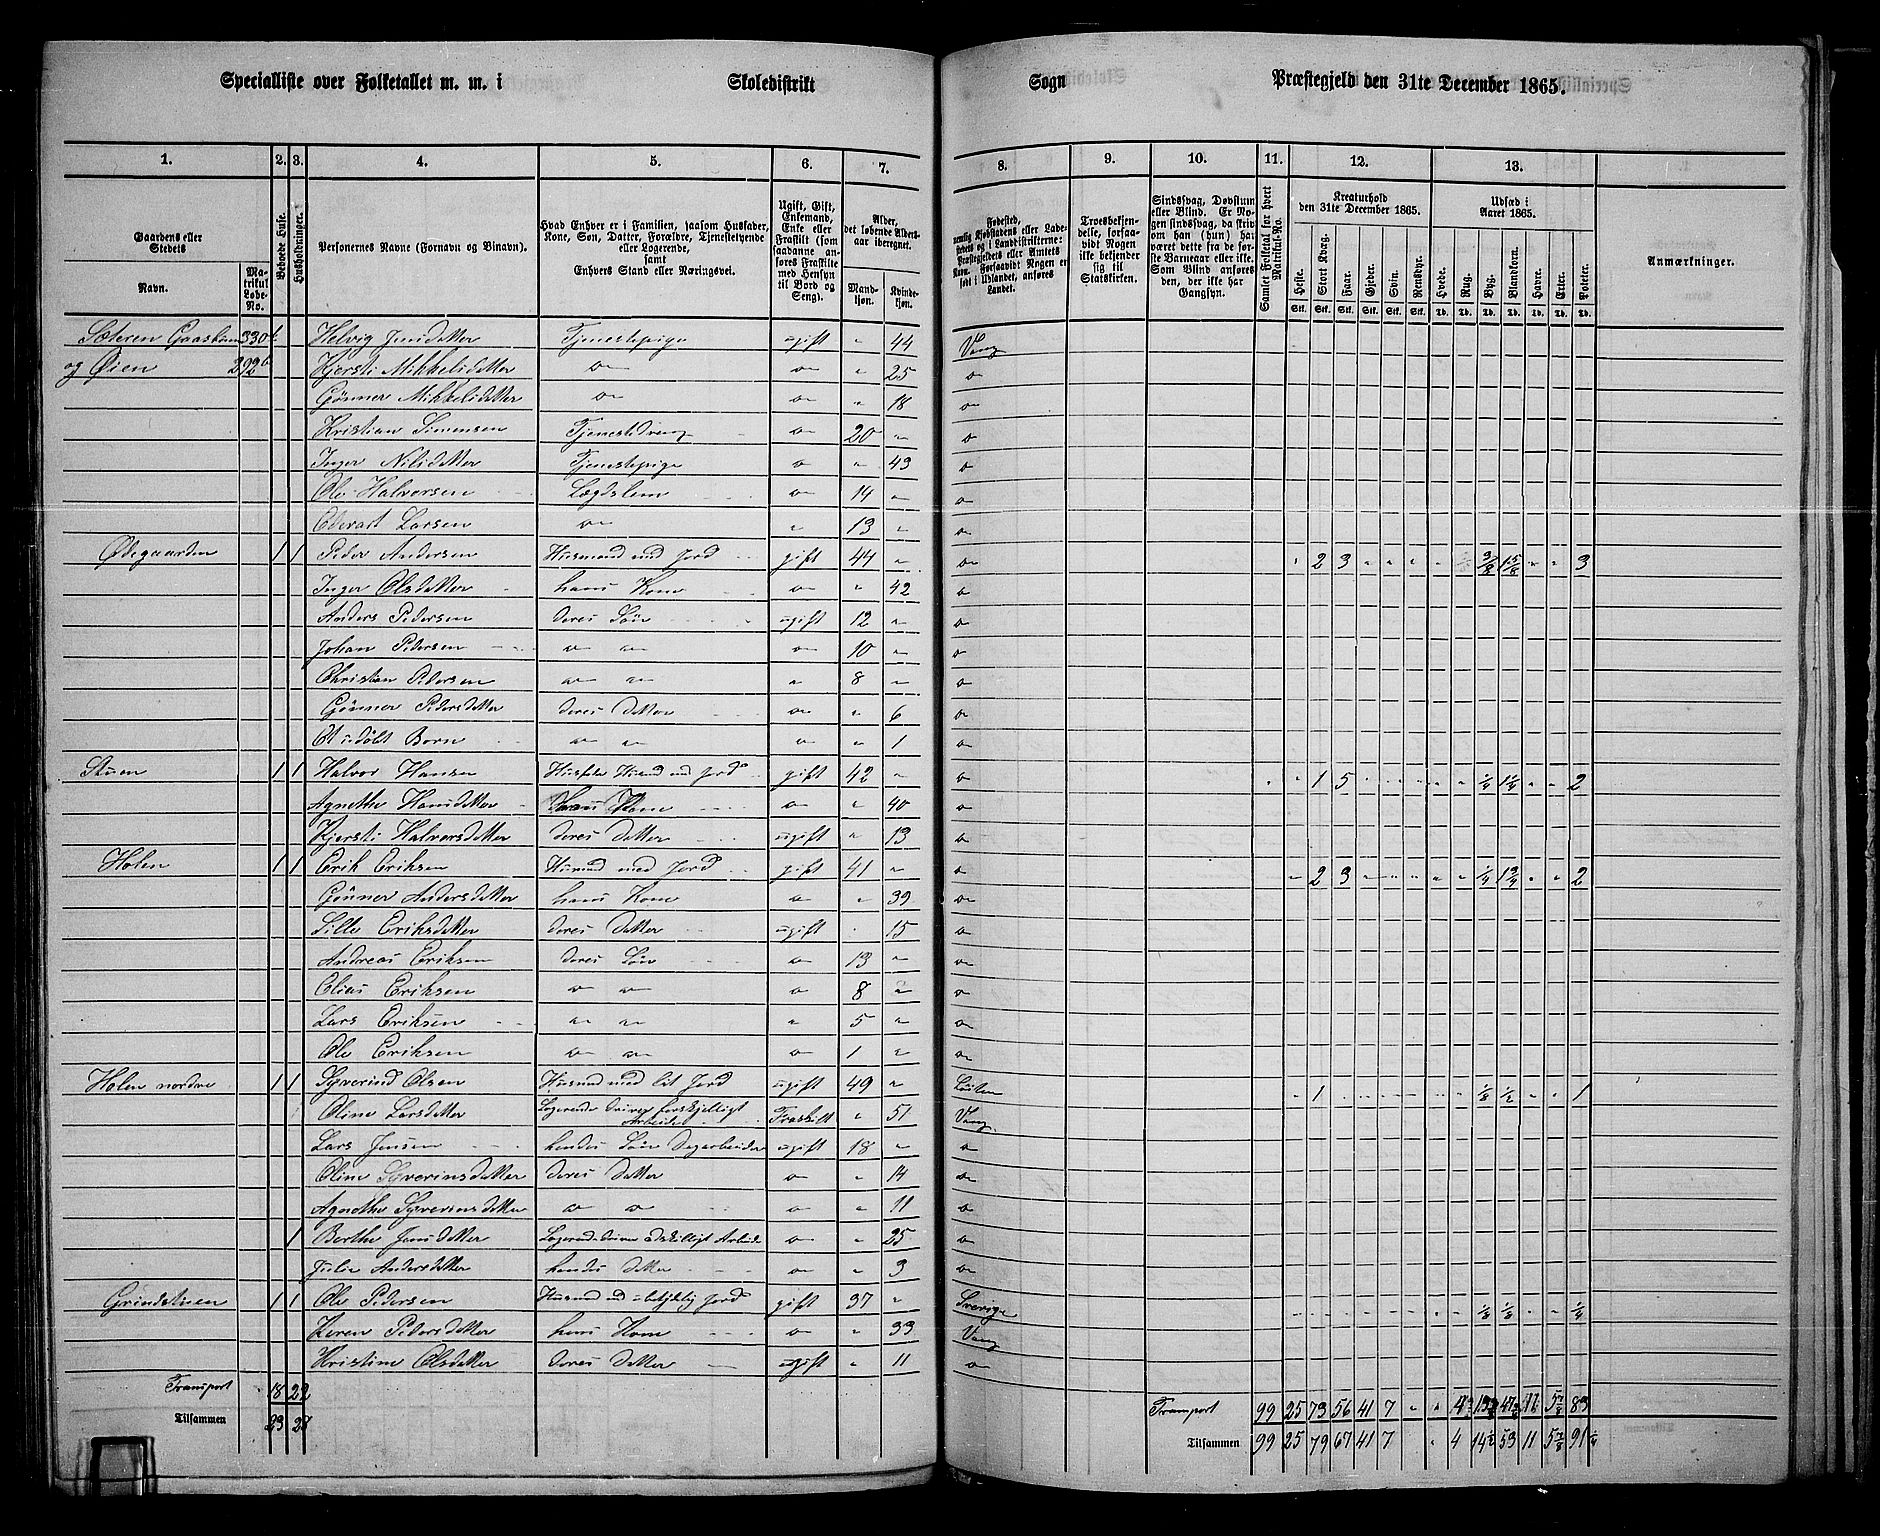 Specialliste over Folketallet m. m. i Skoledistrikt Sogn Præstegjeld den 31te December 1865.
1. 2. 3. 4. 5. 6. 7. 8. 9. 10. 11. 12. 13.
Gaardens eller Stedets
Navn.
Matrikul Løbe-No.
Beboede Huse.
Husholdninger.
Personernes Navne (Fornavn og Binavn).
Hvad Enhver er i Familien, saasom Husfader, Kone, Søn, Datter, Forældre, Tjenestetyende eller Logerende, samt Enhvers Stand eller Næringsvei.
Ugift, Gift, Enkemand, Enke eller Fraskilt (som saadanne anføres Fraskilte med Hensyn til Bord og Seng).
Alder, det løbende Aldersaar iberegnet.
Mandkjøn. Kvindekjøn.
Fødested,
Troesbekjendelse, forsaavidt Nogen ikke bekjender sig til Statskirken.
Sindssvag, Døvstum eller Blind. Er Nogen sindssvag, da skrives om han (hun) har været dette fra de første Barneaar eller ikke. Som Blind anføres den, der ikke har Gangsyn.
Samlet Folketal for hvert Matrikul-No.
Kreaturhold den 31te December 1865.
Heste. Stort Kvæg. Faar. Gjeder. Svin. Rensdyr.
Udsæd i Aaret 1865.
Hvede. Rug. Byg. Blandkorn. Havre. Erter. Poteter.
Anmærkninger.
Sæteren Gaasbann 330 Helvig Jensdatter Tjenestepige ugift " 44 Vang
og Øien 292 Kjersti Mikkelsdatter do do " 25 do
Gønner Mikkelsdatter do do " 18 do
Kristian Simensen Tjenestedreng do 20 " do
Inger Nilsdatter Tjenestepige do " 43 do
Ole Halvorsen Lægdslem do 14 " do
Edevart Larsen do " 13 " do
Ødegaarden 1 1 Peder Andersen Husmand med Jord gift 44 " do " 2 3 " " " " " 3/8 1 5/8 " " 3
Inger Olsdatter hans Kone do " 42 do
Anders Pedersen deres Søn ugift 12 " do
Johan Pedersen do do do 10 " do
Christian Pedersen do do " 8 " do
Gønner Pedersdatter deres Datter do " 6 do
Et udøbt Barn do do do " 1 do
Stuen 1 1 Halvor Hansen Husfader Husmd med Jord gift 42 " do " 1 5 " " " " " 1/4 1 1/4 " " 2
Agnethe Hansdatter hans Kone do " 40 do
Kjersti Halvorsdatter deres Datter ugift " 13 do
Holen 1 1 Erik Eriksen Husmd med Jord gift 41 " do " 2 3 " " " " " 1/4 1 3/4 " " 2
Gønner Andersdatter hans Kone do " 39 do
Sille Eriksdatter deres Datter ugift " 15 do
Andreas Eriksen deres Søn do 13 " do
Elias Eriksen do do do 8 " do
Lars Eriksen do do " 5 " do
Ole Eriksen do do do 1 " do
Holen nordre 1 1 Syverind Olsen Husmd med lit Jord ugift 49 " Løiten " 1 " " " " " " 1/8 1/2 " " 1
Oline Larsdatter Logerende driver forskjelligt Arbeide Fraskilt " 51 Vang
Lars Jensen hendes Søn Dagarbeider ugift 18 " do
Oline Syverinsdatter deres Datter do " 14 do
Agnethe Syverinsdatter do do do " 11 do
1 Berthe Jensdatter Logerende driver adskilligt Arbeide do " 25 do
Julie Andersdatter hendes Datter do " 3 do
Grindstuen 1 1 Ole Pedersen Husmd med ubetydelig Jord gift 37 " Sverige " " " " " " " " 1/8 1/8 " " 1/4
Karen Pedersdatter hans Kone do " 33 Vang
Kristine Olsdatter deres Datter ugift " 11 do
Transport 18 22 Transport 99 25 73 56 41 7 " " 4 13 47 11 5 7/8 83
Tilsammen 23 28 Tilsammen 99 25 79 67 41 7 " 4 14 1/2 53 11 5 7/8 91 1/4